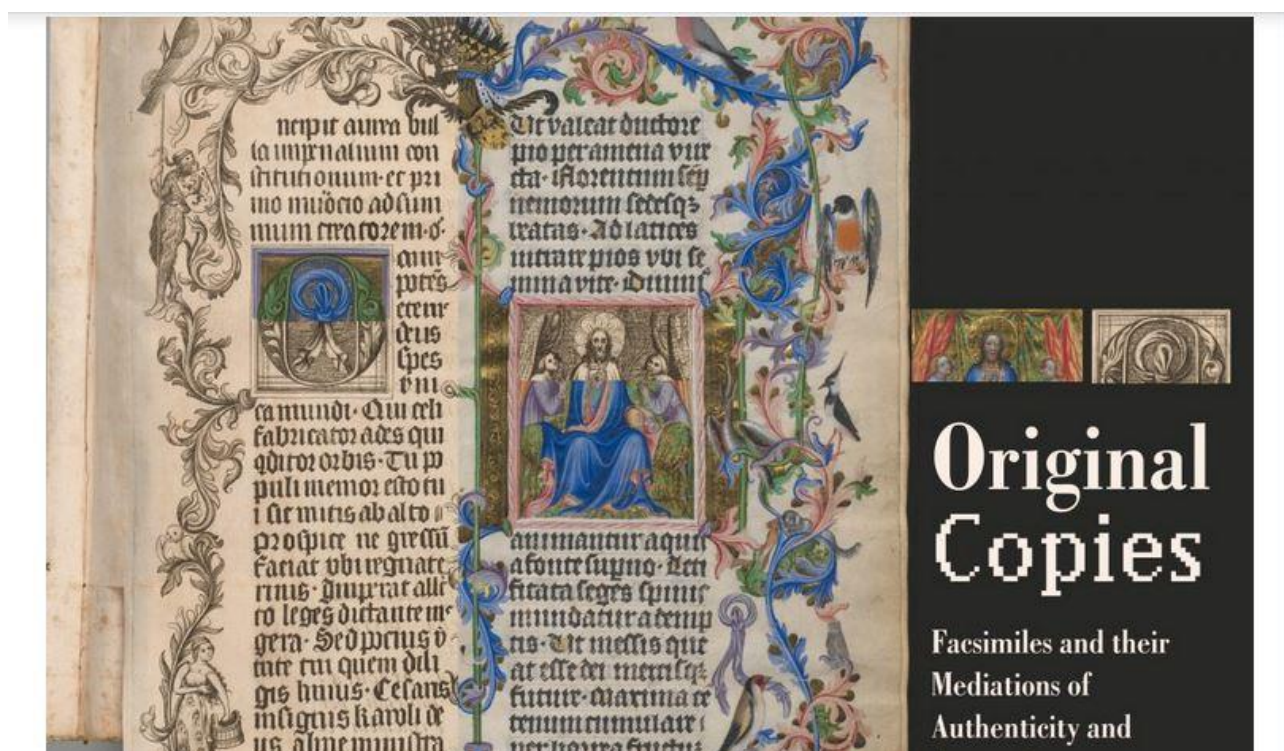 ncipit aurea bul
la impialium con
stitutionum· et pri
mo inuocio ad sum
mum creatorem·o·
mni
potēs
eterne
deus
spes
vni
ca mundi· Qui celi
fabricator ades qui
qditor orbis· Tu po
puli memor esto tu
i sic mitis ab alto
prospice ne gressū
faciat vbi regnat e
rinis· Imperat alle
cto leges dictante me
gera· Sed potius v
tute tui quem dili
gis huius· Cesaris
insignis karoli de
us alme ministra
Ut valeat ductore
pio per amena vire
cta· Florentum sēp
nemorum sedesqꝫ
beatas· Ad latices
intrare pios vbi se
mina vite· Diuinis
animantur aquis
a fonte supno· Leti
ficata seges spinis
mundatur ademp
tis· Ut messis que
at esse dei mercisqꝫ
future· Maxima ce
tenum cumulare
per horrea fructus
Original
Copies
Facsimiles and their
Mediations of
Authenticity and